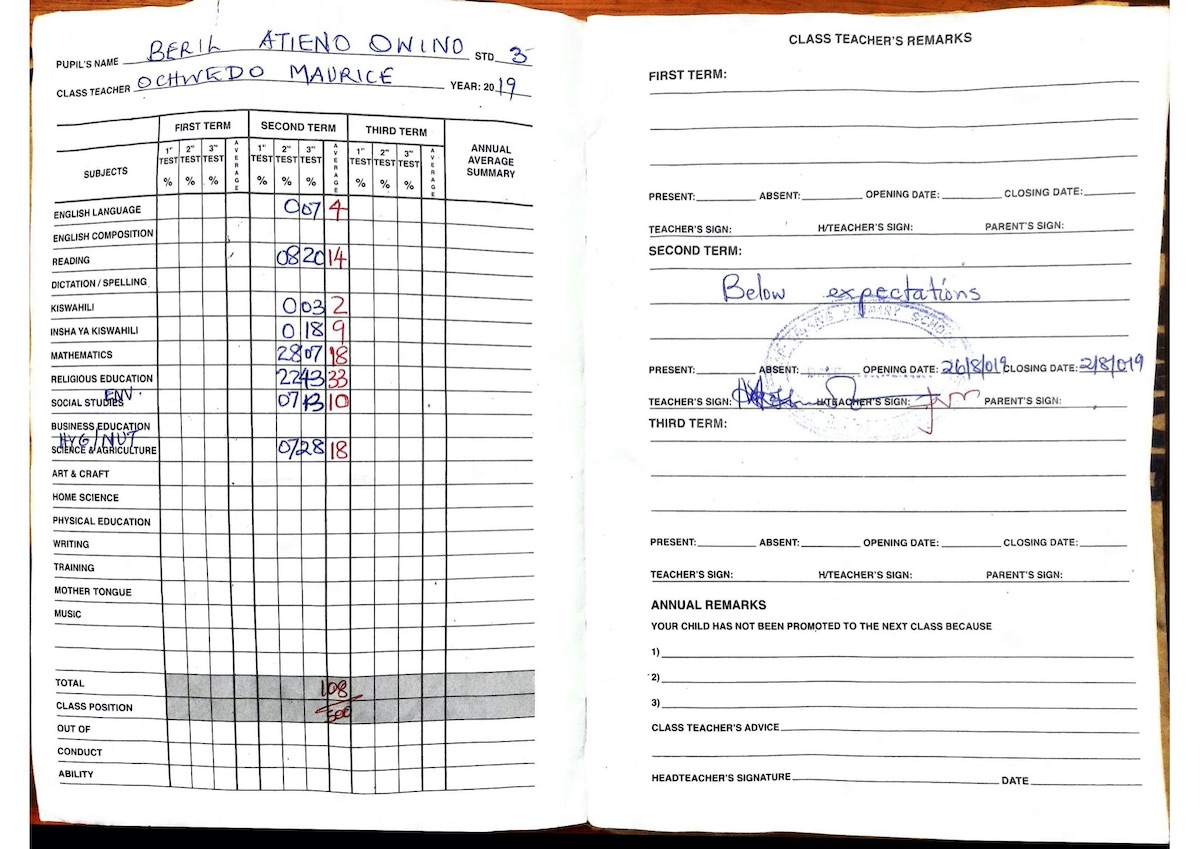 PUPIL'S NAME BERIL ATIENO OWINO STD 3
CLASS TEACHER OCHWEDO MAURICE YEAR: 2019
SUBJECTS FIRST TERM SECOND TERM THIRD TERM ANNUAL AVERAGE SUMMARY
1" TEST % 2" TEST % 3" TEST % AVERAGE 1" TEST % 2" TEST % 3" TEST % AVERAGE 1" TEST % 2" TEST % 3" TEST % AVERAGE
ENGLISH LANGUAGE 0 07 4
ENGLISH COMPOSITION
READING 08 20 14
DICTATION / SPELLING
KISWAHILI 0 03 2
INSHA YA KISWAHILI 0 18 9
MATHEMATICS 28 07 18
RELIGIOUS EDUCATION 22 43 33
SOCIAL STUDIES ENV. 07 13 10
BUSINESS EDUCATION
HYG/NUT
SCIENCE & AGRICULTURE 07 28 18
ART & CRAFT
HOME SCIENCE
PHYSICAL EDUCATION
WRITING
TRAINING
MOTHER TONGUE
MUSIC
TOTAL 108
CLASS POSITION 500
OUT OF
CONDUCT
ABILITY
CLASS TEACHER'S REMARKS
FIRST TERM:
PRESENT: ABSENT: OPENING DATE: CLOSING DATE:
TEACHER'S SIGN: H/TEACHER'S SIGN: PARENT'S SIGN:
SECOND TERM:
Below expectations
PRIMARY SCHO
PRESENT: ABSENT: OPENING DATE: 26/8/019 CLOSING DATE: 2/8/019
TEACHER'S SIGN: H/TEACHER'S SIGN: PARENT'S SIGN:
THIRD TERM:
PRESENT: ABSENT: OPENING DATE: CLOSING DATE:
TEACHER'S SIGN: H/TEACHER'S SIGN: PARENT'S SIGN:
ANNUAL REMARKS
YOUR CHILD HAS NOT BEEN PROMOTED TO THE NEXT CLASS BECAUSE
1)
2)
3)
CLASS TEACHER'S ADVICE
HEADTEACHER'S SIGNATURE DATE